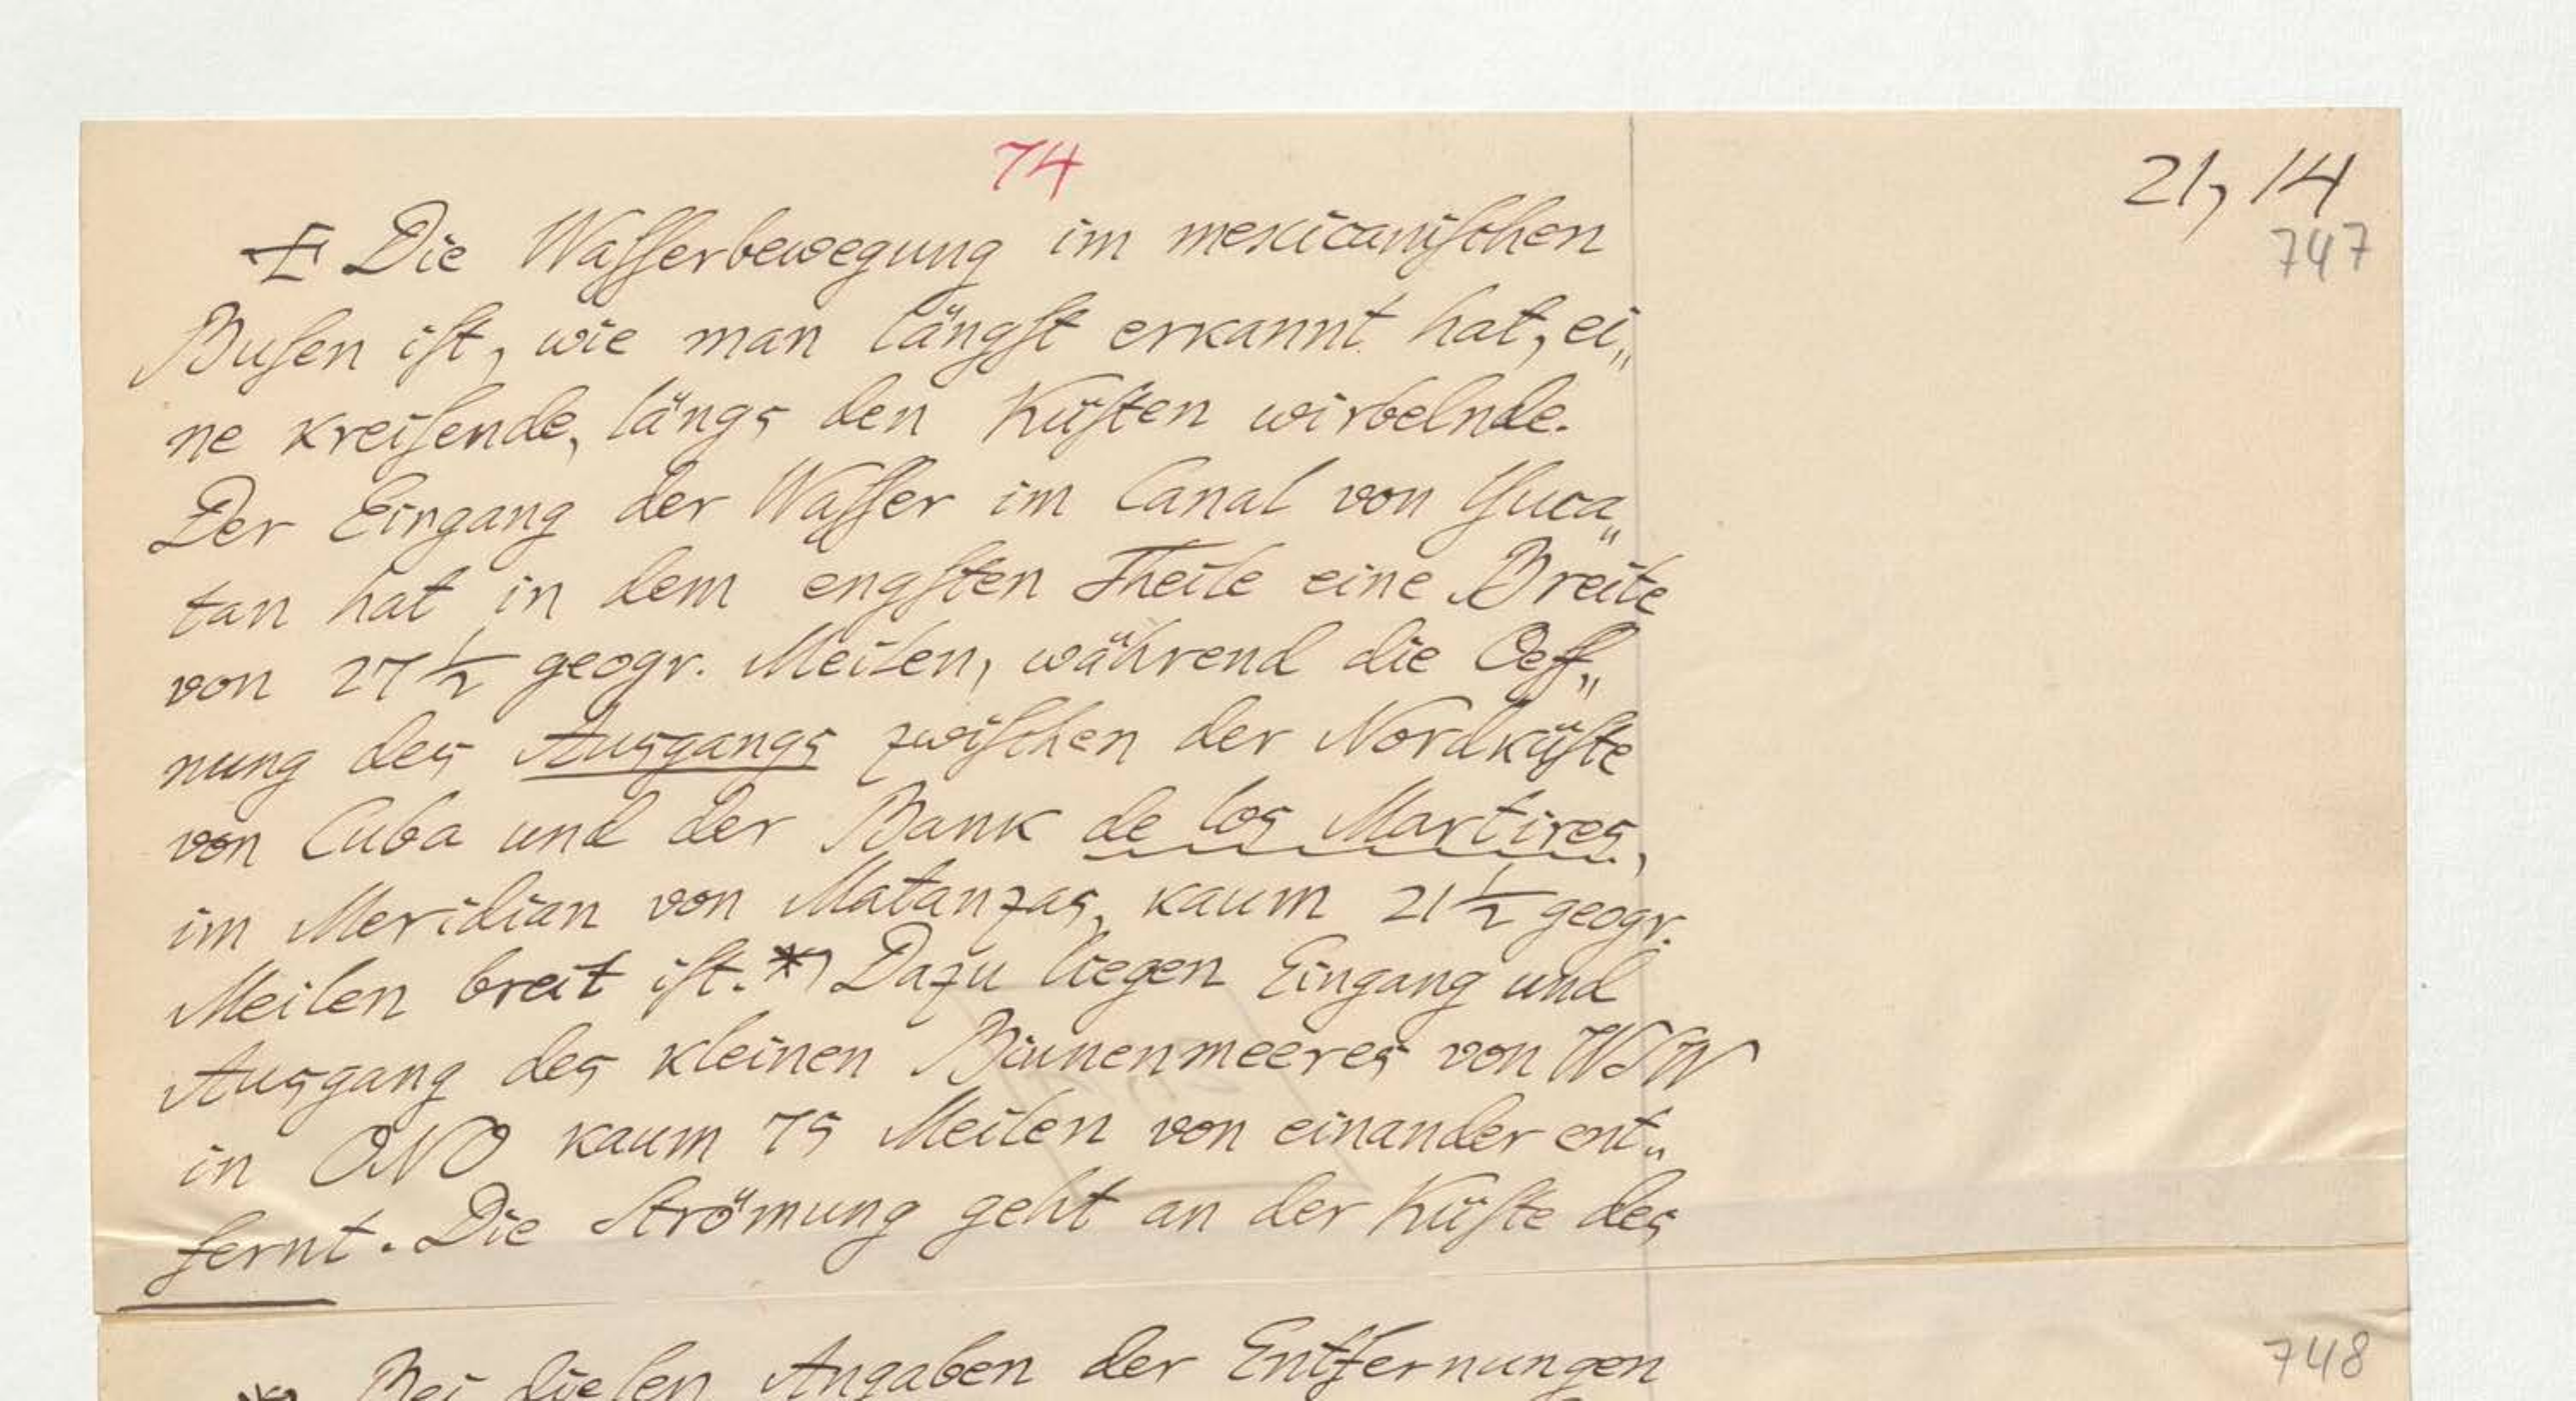 74
21, 14
747
Die Wasserbewegung im mexicanischen
Busen ist, wie man längst erkannt hat, ei„
ne kreisende, längs den Küsten wirbelnde.
Der Eingang der Wasser im Canal von Yuca„
tan hat in dem engsten Theile eine Breite
von 27 1/2 geogr. Meilen, während die Oeff„
nung des Ausgangs zwischen der Nordküste
von Cuba und der Bank de los Martires,
im Meridian von Matanzas, kaum 21 1/2 geogr.
Meilen breit ist.*) Dazu liegen Eingang und
Ausgang des kleinen Binnenmeeres von WSW
in ONO kaum 75 Meilen von einander ent„
fernt. Die Strömung geht an der Küste des
748
* Bei diesen Angaben der Entfernungen